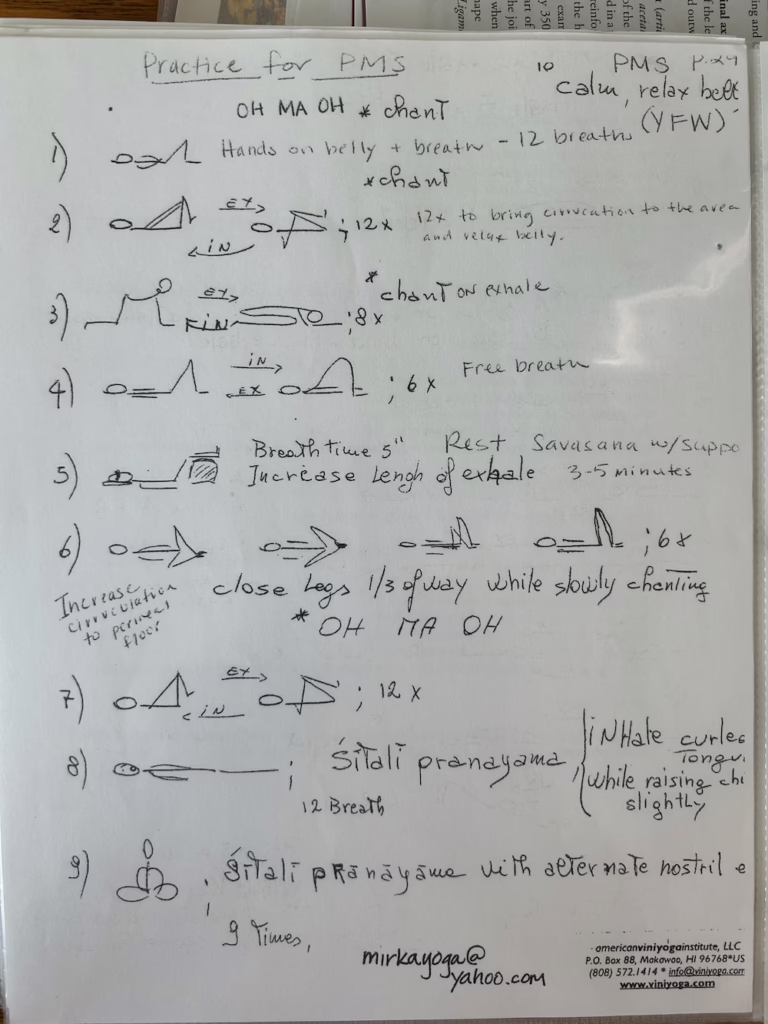 Practice for PMS
10 PMS P.24
calm, relax belt
(YFW)
OH MA OH * chant
1) Hands on belly + breath - 12 breaths
*chant
2) EX IN ; 12x 12x to bring cirrucation to the area
and relax belly.
3) EX IN ; 8x * chant on exhale
4) IN EX ; 6x Free breath
5) Breath time 5" Rest Savasana w/suppo
Increase Lengh of exhale 3-5 minutes
6) ; 6x
Increase
cirruculation
to perineal
floor
close Legs 1/3 of way while slowly chenting
* OH MA OH
7) EX IN ; 12x
8) ; Śitalī pranayama, iNHale curles
Tongu
while raising chi
slightly
12 Breath
9) ; Śitalī prānāyāme with alternate nostril e
9 Times,
mirkayoga@
yahoo.com
americanviniyogainstitute, LLC
P.O. Box 88, Makawao, HI 96768*US
(808) 572.1414 * info@viniyoga.com
www.viniyoga.com
inal ax
of the le
d outw
ing and
d in a
reinfo
the h
exam
y 350
art of
the joi
when
hape
Ligam